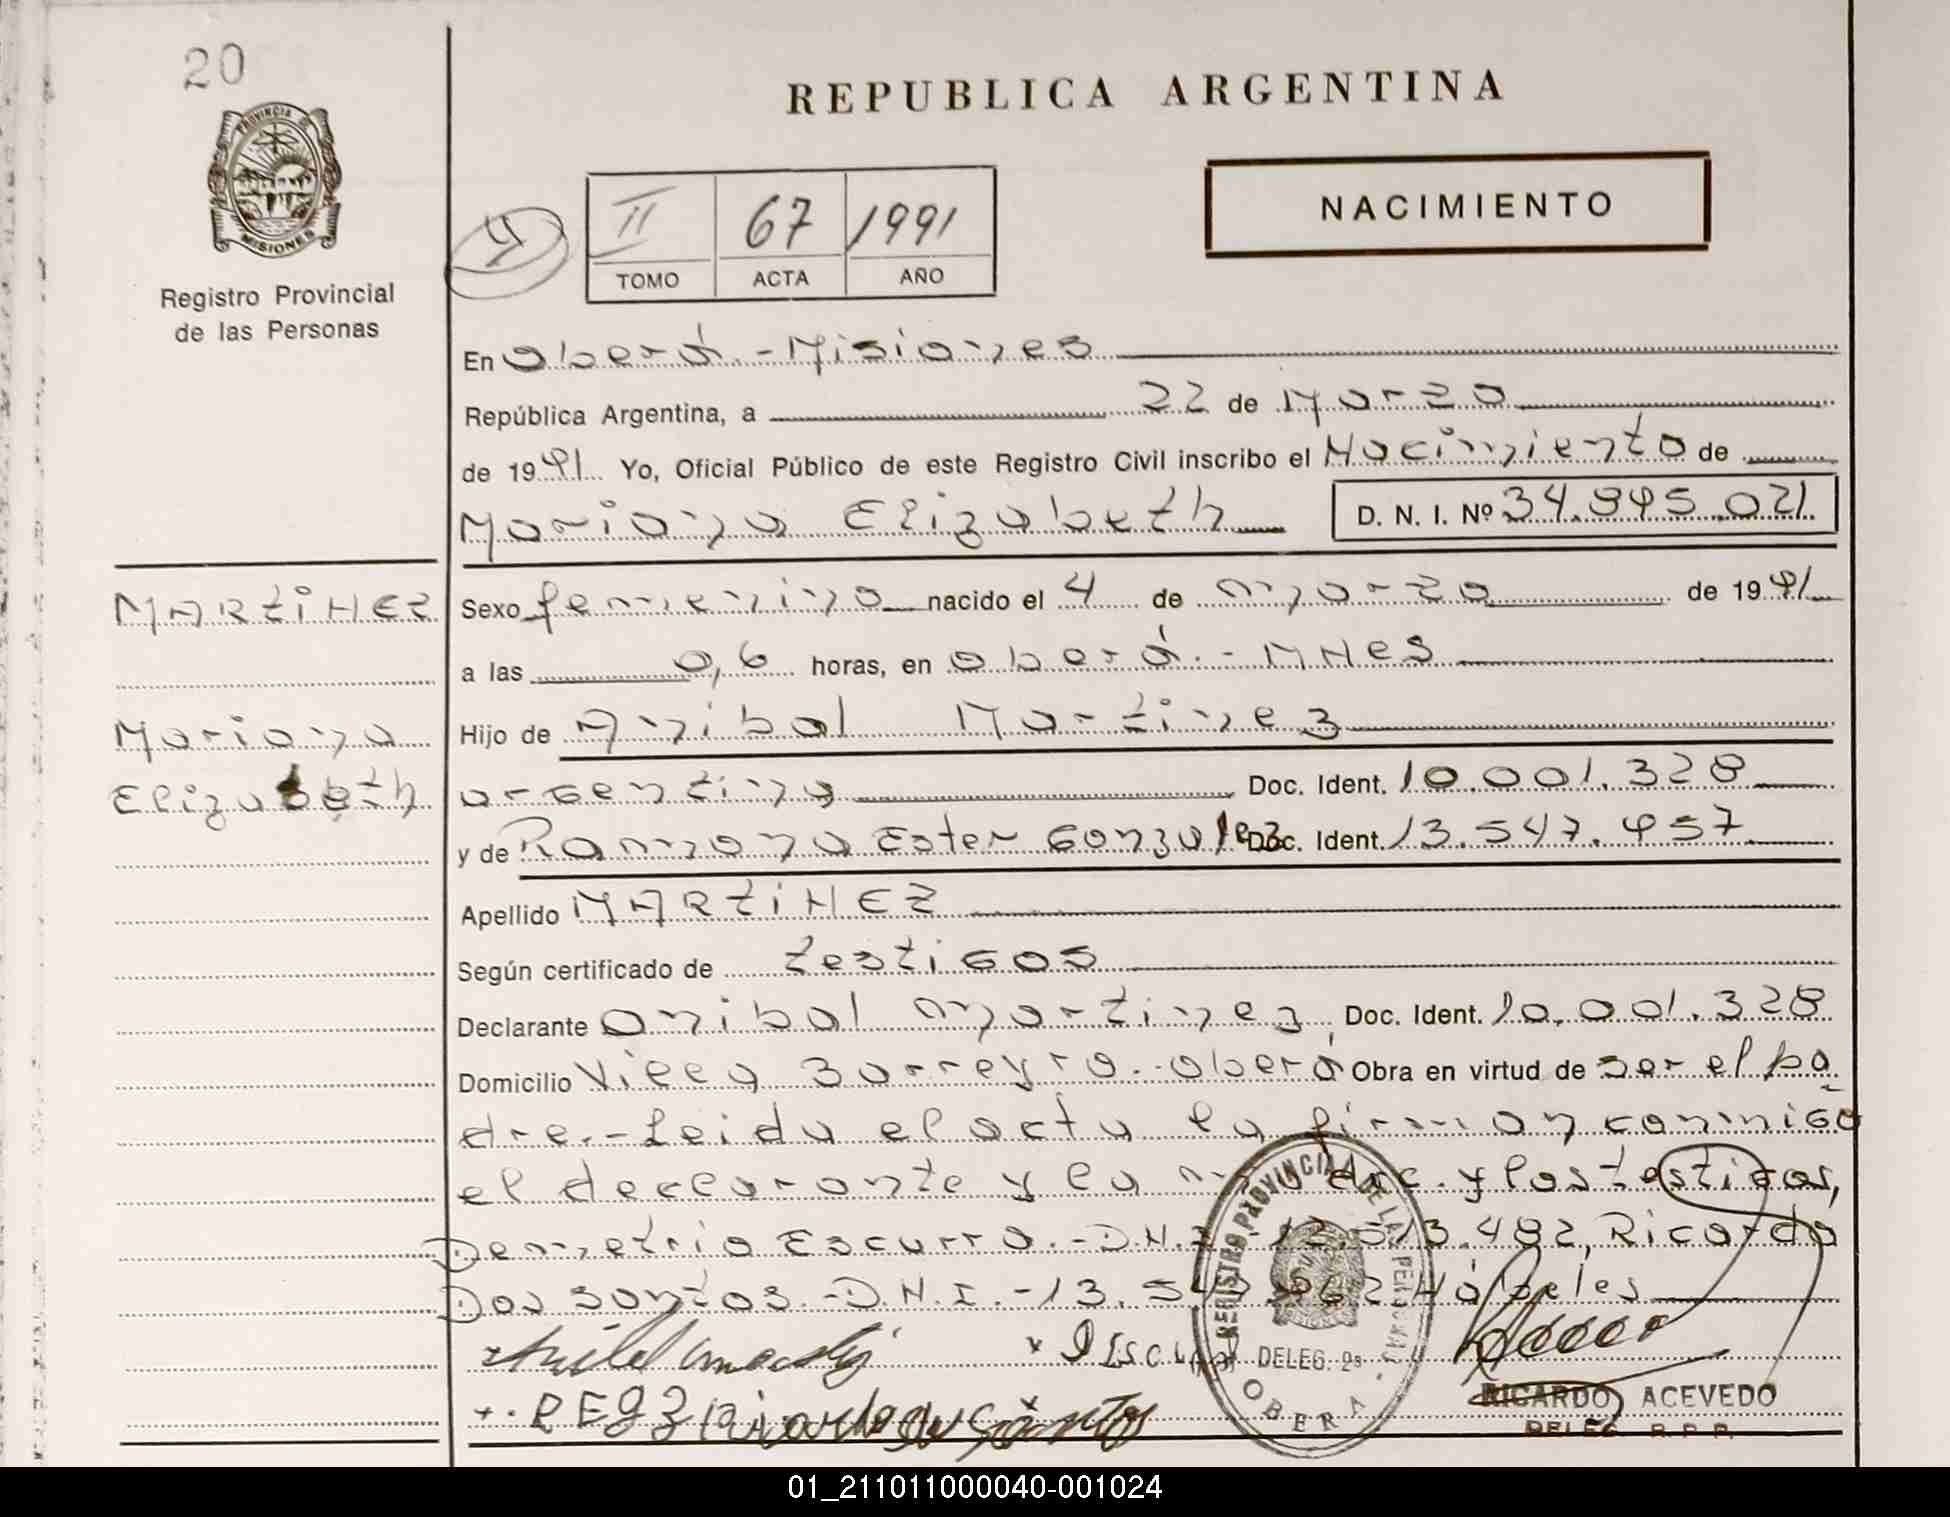 20
REPUBLICA ARGENTINA
PROVINCIA DE
MISIONES
Registro Provincial
de las Personas
II 67 1991
TOMO ACTA AÑO
NACIMIENTO
En Oberá.-Misiones
República Argentina, a 22 de Marzo
de 1991. Yo, Oficial Público de este Registro Civil inscribo el Nacimiento de
Mariana Elizabeth D. N. I. Nº 34.895.021
MARTINEZ
Sexo femenino nacido el 4 de marzo de 1991
a las 0,6 horas, en Oberá.-MNes
Mariana
Elizabeth
Hijo de Anibal Martinez
argentino Doc. Ident. 10.001.328
y de Ramona Ester Gonzalez Doc. Ident. 13.547.957
Apellido MARTINEZ
Según certificado de testigos
Declarante Anibal Martinez, Doc. Ident. 10.001.328
Domicilio Villa Barreyro.-Oberá Obra en virtud de ser el pa
dre.-Leida el acta la firman conmigo
el declarante y la madre y los testigos,
Demetrio Escurra.-D.N.I. 12. .482, Ricardo
Dos Santos.-D.N.I.-13.
REGISTRO PROVINCIAL DE LAS PERSONAS
DELEG. 2a
OBERA
RICARDO ACEVEDO
DELEG. R. P. P.
01_211011000040-001024